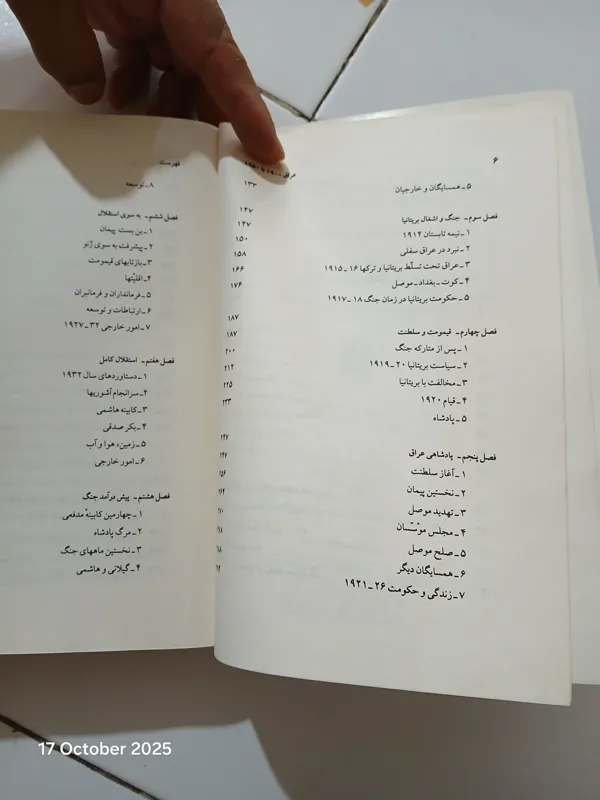 ۶
عراق ۱۹۰۰ تا ۱۹۵۰
۵ ـ همسایگان و خارجیان ۱۳۳
فصل سوم ـ جنگ و اشغال بریتانیا ۱۴۷
۱ ـ نیمه تابستان ۱۹۱۴ ۱۴۷
۲ ـ نبرد در عراق سفلی ۱۵۰
۳ ـ عراق تحت تسلّط بریتانیا و ترکها ۱۶ ـ ۱۹۱۵ ۱۵۸
۴ ـ کوت ـ بغداد ـ موصل ۱۶۶
۵ ـ حکومت بریتانیا در زمان جنگ ۱۸ ـ ۱۹۱۷ ۱۷۶
فصل چهارم ـ قیمومت و سلطنت ۱۸۷
۱ ـ پس از متارکه جنگ ۱۸۷
۲ ـ سیاست بریتانیا ۲۰ ـ ۱۹۱۹ ۲۰۰
۳ ـ مخالفت با بریتانیا ۲۱۲
۴ ـ قیام ۱۹۲۰ ۲۲۵
۵ ـ پادشاه ۲۳۳
فصل پنجم ـ پادشاهی عراق ۲۴۷
۱ ـ آغاز سلطنت
۲ ـ نخستین پیمان
۳ ـ تهدید موصل
۴ ـ مجلس مؤسّسان
۵ ـ صلح موصل
۶ ـ همسایگان دیگر
۷ ـ زندگی و حکومت ۲۶ ـ ۱۹۲۱
فهرست
۸ ـ توسعه
فصل ششم ـ به سوی استقلال
۱ ـ بن بست پیمان
۲ ـ پیشرفت به سوی ژنو
۳ ـ بازتابهای قیمومت
۴ ـ اقلیّتها
۵ ـ فرمانداران و فرمانبران
۶ ـ ارتباطات و توسعه
۷ ـ امور خارجی ۳۲ ـ ۱۹۲۷
فصل هفتم ـ استقلال کامل
۱ ـ دستاوردهای سال ۱۹۳۲
۲ ـ سرانجام آشوریها
۳ ـ کابینه هاشمی
۴ ـ بکر صدقی
۵ ـ زمین، هوا و آب
۶ ـ امور خارجی
فصل هشتم ـ پیش درآمد جنگ
۱ ـ چهارمین کابینهٔ مدفعی
۲ ـ مرگ پادشاه
۳ ـ نخستین ماههای جنگ
۴ ـ گیلانی و هاشمی
17 October 2025